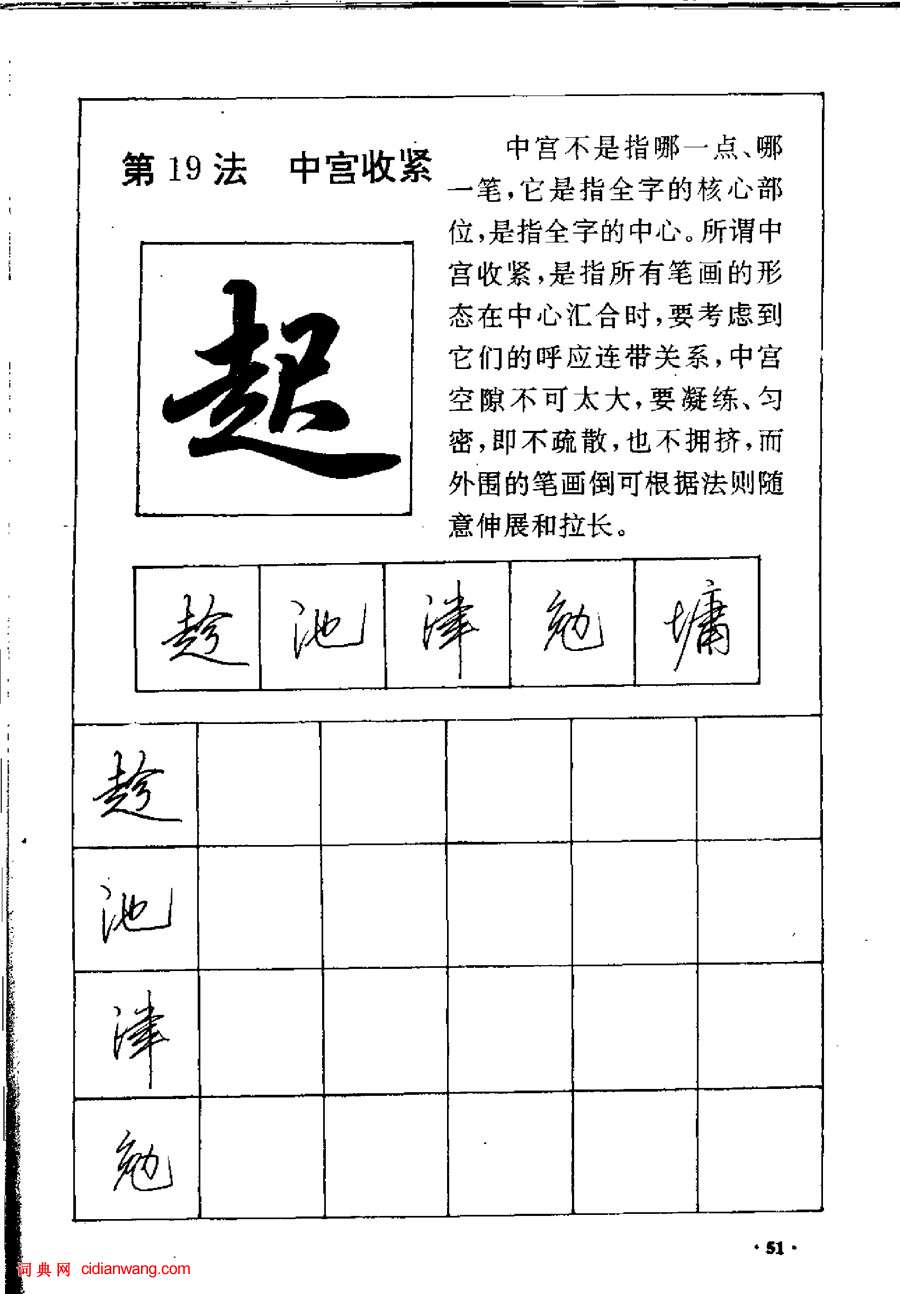 第19法 中宫收紧
中宫不是指哪一点、哪
一笔,它是指全字的核心部
位,是指全字的中心。所谓中
宫收紧,是指所有笔画的形
态在中心汇合时,要考虑到
它们的呼应连带关系,中宫
空隙不可太大,要凝练、匀
密,即不疏散,也不拥挤,而
外围的笔画倒可根据法则随
意伸展和拉长。
起
趁 池 津 勉 墉
趁
池
津
勉
·51·
词典网 cidianwang.com